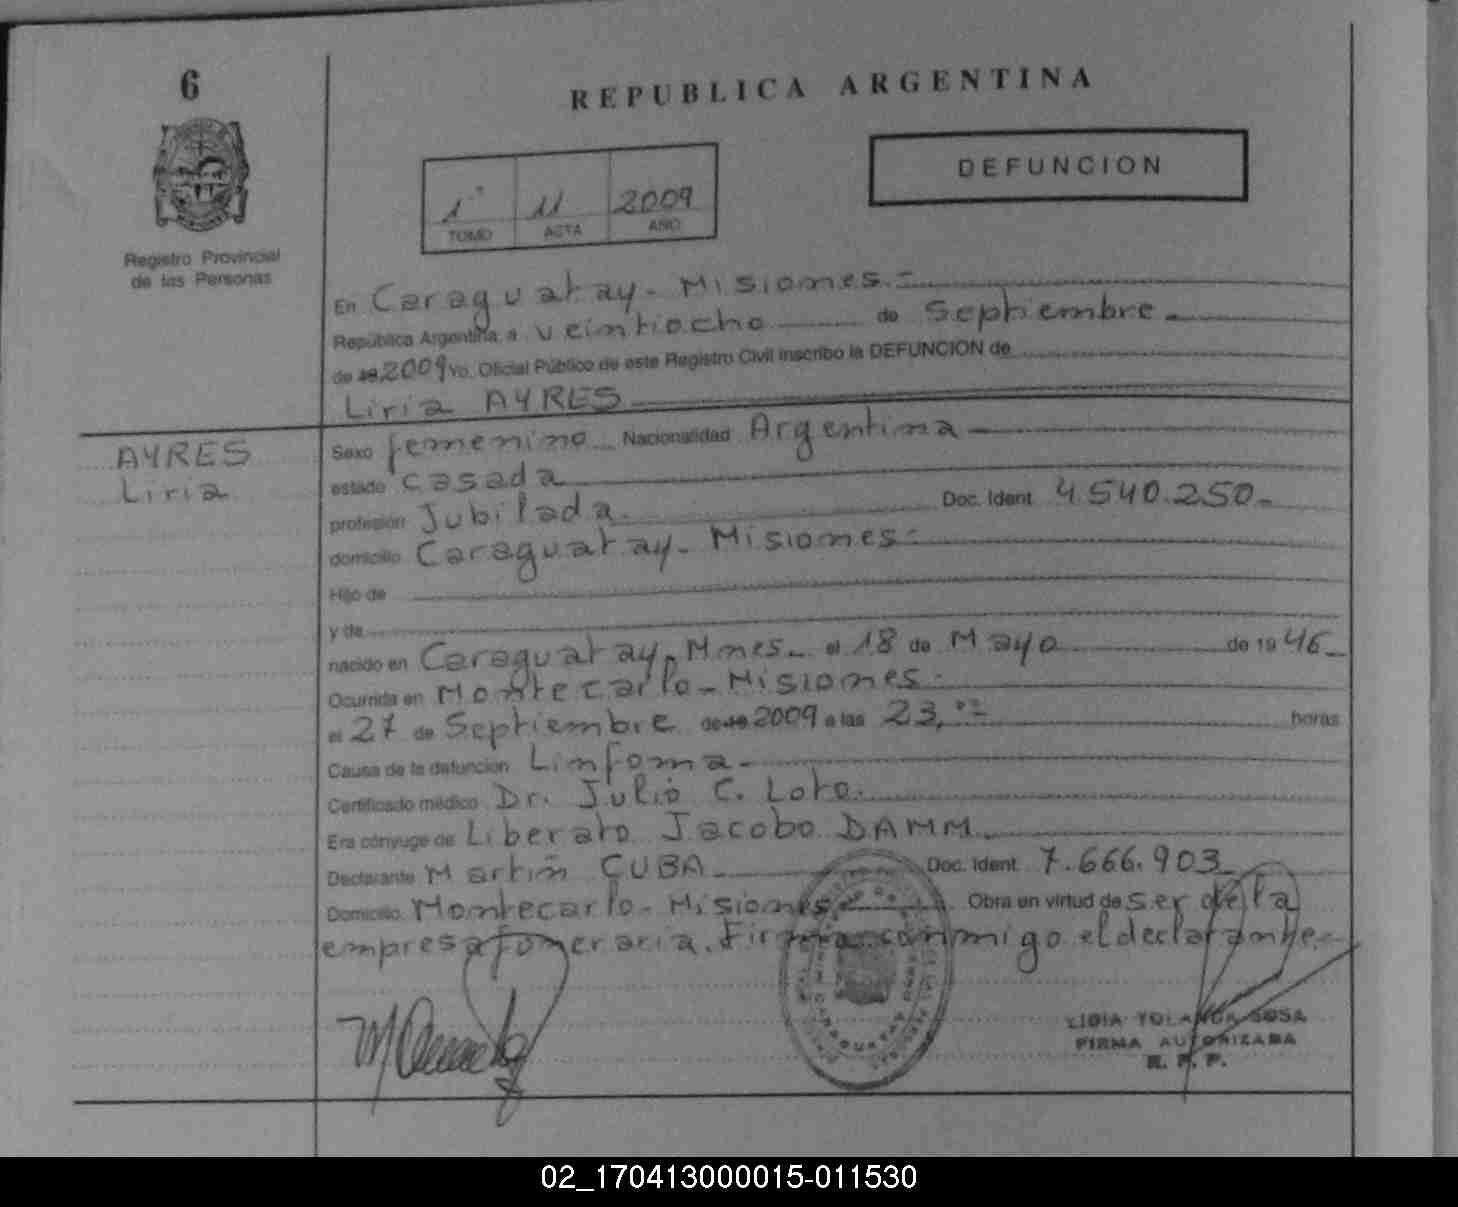 6
REPUBLICA ARGENTINA
DEFUNCION
1° 11 2009
TOMO ACTA AÑO
Registro Provincial
de las Personas
En Caraguatay - Misiones.=
República Argentina, a veintiocho de Septiembre -
de 19 2009 Yo, Oficial Público de este Registro Civil inscribo la DEFUNCION de
Liria AYRES
AYRES
Liria
Sexo femenino Nacionalidad Argentina
estado casada
profesión Jubilada. Doc. Ident. 4.540.250-
domicilio Caraguatay - Misiones-
Hijo de
y de
nacido en Caraguatay, Mnes. el 18 de Mayo de 19 46-
Ocurrida en Montecarlo - Misiones.
el 27 de Septiembre de 19 2009 a las 23, horas
Causa de la defunción Linfoma -
Certificado médico Dr. Julio C. Loto.
Era cónyuge de Liberato Jacobo DAMM
Declarante Martín CUBA Doc. Ident. 7.666.903
Domicilio Montecarlo - Misiones Obra en virtud de ser de la
empresa funeraria. Firma conmigo el declarante.-
LIGIA YOLANDA SOSA
FIRMA AUTORIZADA
R. P. P.
02_170413000015-011530